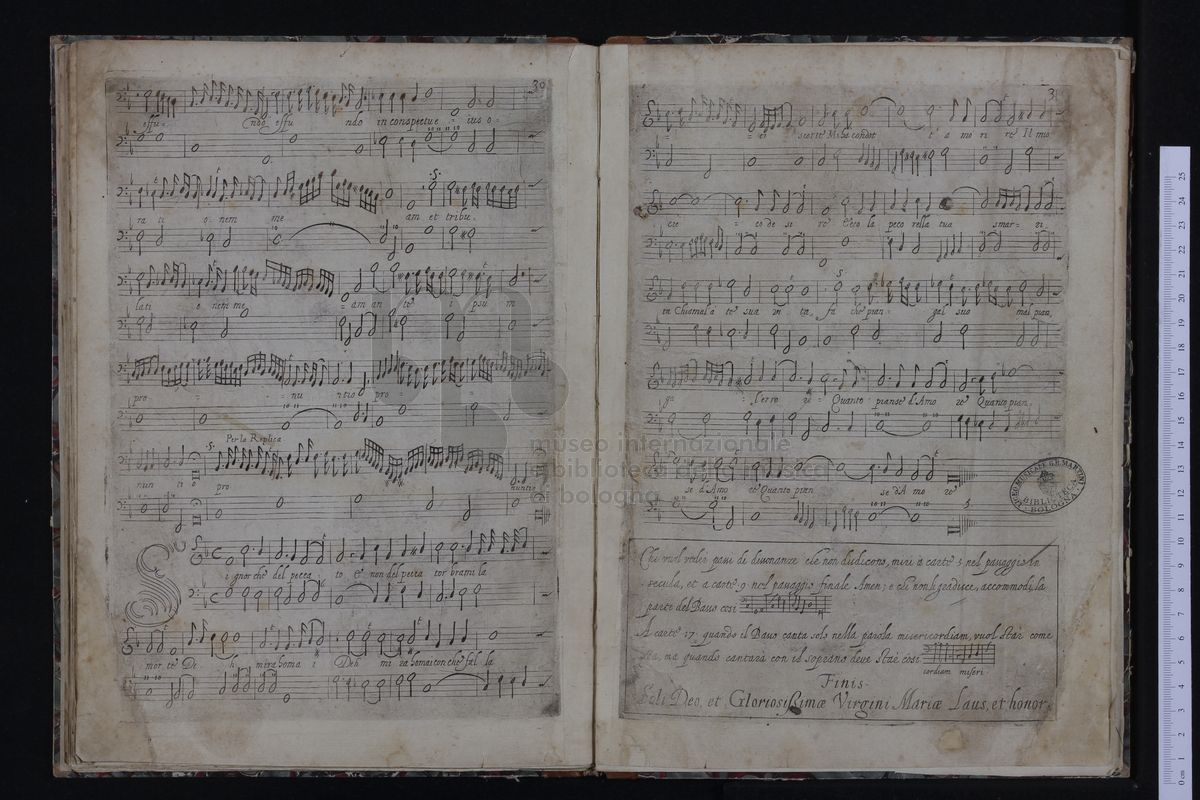 30
effu- Endo effu ndo in conspectu e ius o-
ra ti o- nem me am et tribu.
lati o nem me = am an te i psu m
pro nu ntio pro
Per la Replica
nun ti o pro nuntio
Signor che del pecca to e non del pecca tor brami la
mor te De h mira homa i Deh mi ra homai con che fal la
31
morire Il mio
co de si re Ecco la peco rella tua smar ri
ta Chiamal a te sua vi ta fa che pian gal suo mal pian,
ga L'erro re Quanto pianse d'Amo re Quanto pian,
se d'Amo re Quanto pian se d'A mo re
Chi vuol veder passi di dissonanze che non dudicono, miri a carte 3 nel passaggio In
secula, et a carte 9 nel passaggio finale Amen; e chi non li gradisce, accommodi la
parte del Basso così
A carte 17. quando il Basso canta solo nella parola misericordiam, vuol star come
sta, ma quando cantarà con il soprano deve star così
cordiam miseri
Finis.
Soli Deo, et Gloriosissimæ Virgini Mariæ Laus, et honor.
LICEO MUNICALE G.B. MARTINI
BIBLIOTECA
BOLOGNA
museo internazionale
e biblioteca della musica
di bologna
0 cm 1 2 3 4 5 6 7 8 9 10 11 12 13 14 15 16 17 18 19 20 21 22 23 24 25